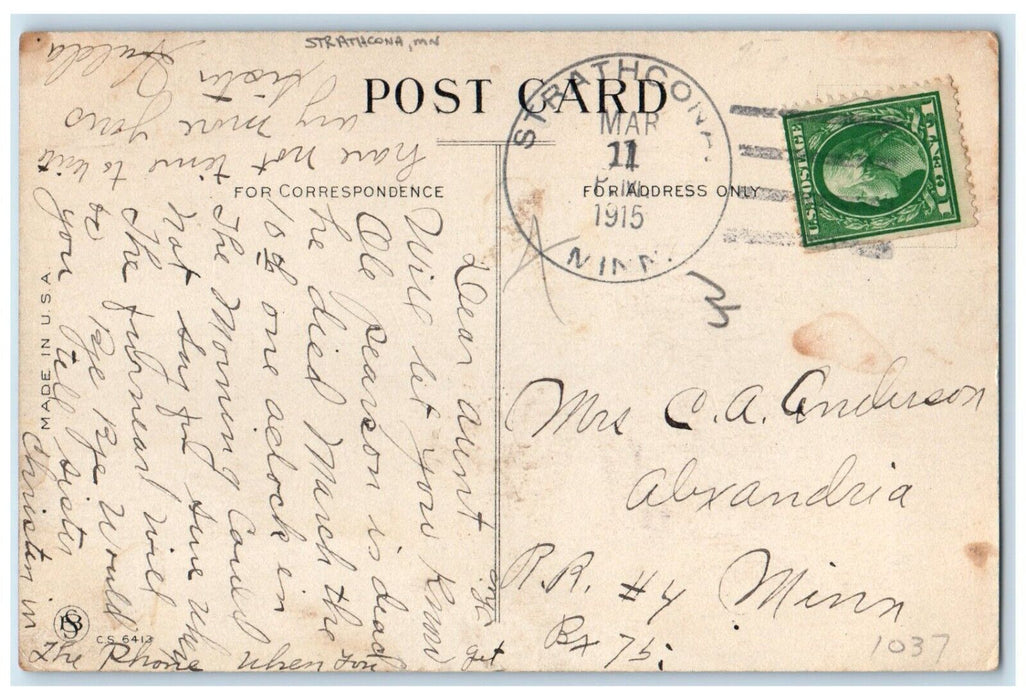 STRATHCONA, MN
POST CARD
FOR CORRESPONDENCE
FOR ADDRESS ONLY
STRATHCONA
MAR
11
P.M.
1915
MINN.
U.S. POSTAGE
1 CENT 1
Dear Aunt
Will let you know
Ole Pearson is dead
he died March the
10th one aclock in
The Morning Cant
not say for sure when
the funeral will
be Bye Bye Would
you tell sister
Christin in
The Phone when you get
have not time to write
any more yours
Sister
Hulda
Mrs C. A. Anderson
Alexandria
R.R. #4 Minn
Bx 75.
MADE IN U.S.A.
C.S. 6413
1037